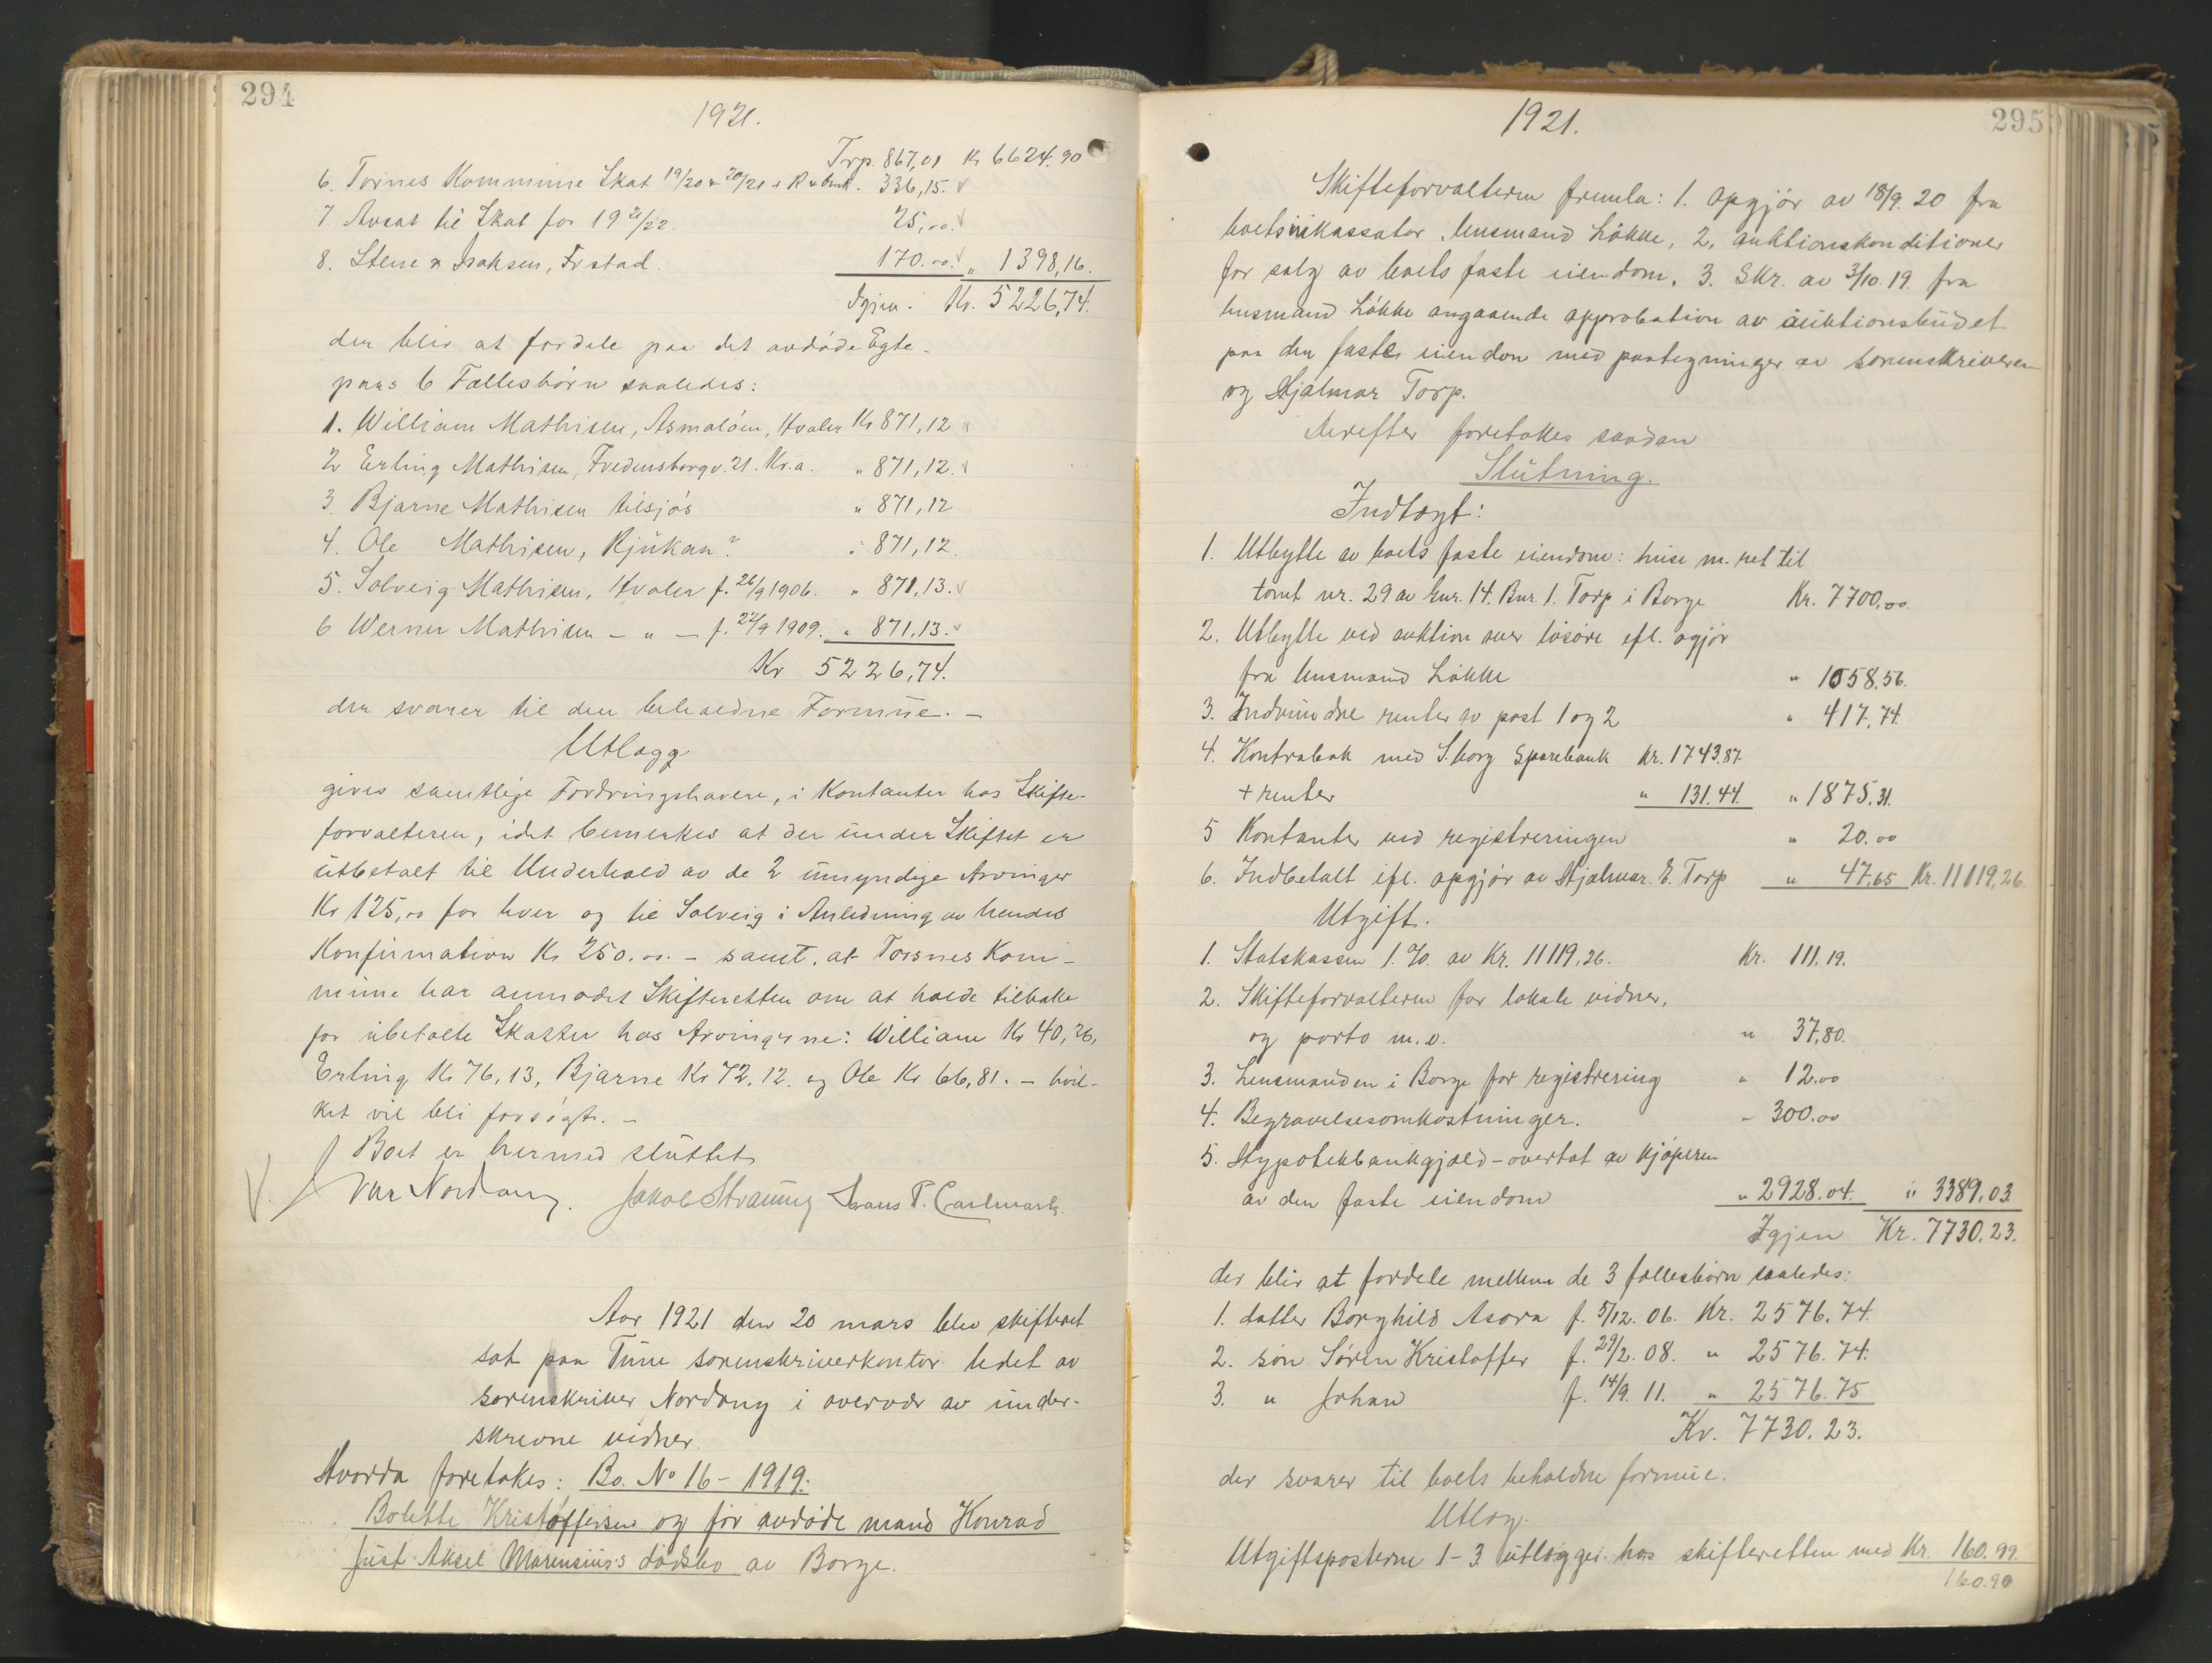 294
1921.
Trp. 867,01 Kr 6624.90
6. Torsnes Kommune Skat 19/20 & 20/21 + R & Omk. 336,15.
7 Avsat til Skat for 19 21/22. 25,00.
8. Stene & Isaksen, Frstad. 170.00. " 1398,16.
Igjen. Kr. 5226,74.
der blir at fordele paa det avdøde Egte-
pars 6 Fællesbørn saaledes:
1. William Mathisen, Asmaløen, Hvaler Kr 871,12
2 Erling Mathisen, Fredensborgv. 21. Kr.a. " 871,12.
3. Bjarne Mathisen tilsjøs " 871,12
4. Ole Mathisen, Rjukan? " 871,12.
5. Solveig Mathisen, Hvaler f. 26/9 1906. " 871,13.
6 Werner Mathisen - " - f. 22/9 1909. " 871,13.
Kr 5226,74.
der svarer til den beholdne Formue. -
Utlægg
gives samtlige Fordringshavere, i Kontanter hos Skifte-
forvalteren, idet bemerkes at der under Skiftet er
utbetalt til Underhold av de 2 umyndige Arvinger
Kr 125,00 for hver og til Solveig i Anledning av hendes
Konfirmation Kr 250.00. - samt. at Torsnes Kom-
mune har anmodet Skifteretten om at holde tilbake
for ubetalte Skatter hos Arvingerne: William Kr 40,26,
Erling Kr 76,13, Bjarne Kr 72,12. og Ole Kr 66,81. - hvil-
ket vil bli forsøgt. -
Boet er hermed sluttet.
Nordang. Jakob Strauing Hans P. Carlmark.
Aar 1921 den 20 mars blev skifteret
sat paa Tune sorenskriverkontor ledet av
sorenskriver Nordang i overvær av under-
skrevne vidner.
Hvorda foretokes: Bo. No 16 - 1919.
Bolette Kristoffersen og før avdøde mand Konrad
Just Aksel Marensius's dødsbo av Borge.
295
1921.
Skifteforvalteren fremla: 1. opgjør av 18/9. 20 fra
boets inkassator, lensmand Løkke, 2. auktionskonditioner
for salg av boets faste eiendom. 3. Skr. av 3/10. 19. fra
lensmand Løkke angaaende approbation av auktionsbudet
paa den faste eiendom med paategninger av sorenskriveren
og Hjalmar Torp.
Derefter foretokes saadan
Slutning.
Indtægt:
1. Utbytte av boets faste eiendom: huse m. ret til
tomt nr. 29 av Gnr. 14. Bnr. 1. Torp i Borge Kr. 7700,00.
2. Utbytte ved auktion over løsøre ifl. ogjør
fra lensmand Løkke " 1058,56.
3. Indvundne renter av post 1 og 2 " 417,74.
4. Kontrabok med S.borg Sparebank Kr. 1743.87
+ renter " 131.44. " 1875,31.
5 Kontanter ved registreringen " 20.00
6. Indbetalt ifl. opgjør av Hjalmar E. Torp " 47,65 Kr. 11119,26.
Utgift.
1. Statskassen 1.%. av Kr. 11119,26. Kr. 111.19.
2. Skifteforvalteren for lokale vidner,
og porto m.v. " 37,80.
3. Lensmanden i Borge for registrering " 12.00
4. Begravelsesomkostninger. " 300.00
5. Hypotekbankgjæld - overtat av kjøperen
av den faste eiendom " 2928.04. " 3389,03
Igjen Kr. 7730.23.
der blir at fordele mellem de 3 fællesbørn saaledes:
1. datter Borghild Asora f. 5/12. 06. Kr. 2576.74.
2. søn Søren Kristoffer f. 29/2. 08. " 2576.74.
3. " Johan f. 14/9. 11. " 2576.75
Kr. 7730.23.
der svarer til boets beholdne formue.
Utlæg.
Utgiftsposterne 1-3 utlægges hos skifteretten med Kr. 160.99.
160.90